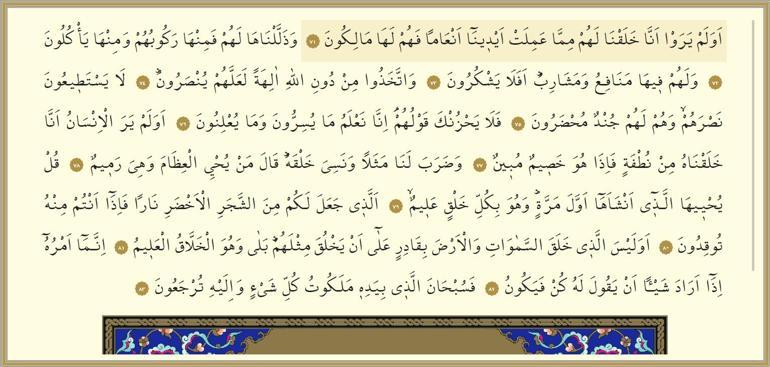 اَوَلَمْ يَرَوْا اَنَّا خَلَقْنَا لَهُمْ مِمَّا عَمِلَتْ اَيْد۪ينَٓا اَنْعَاماً فَهُمْ لَهَا مَالِكُونَ ٧١ وَذَلَّلْنَاهَا لَهُمْ فَمِنْهَا رَكُوبُهُمْ وَمِنْهَا يَأْكُلُونَ
٧٢ وَلَهُمْ ف۪يهَا مَنَافِعُ وَمَشَارِبُۜ اَفَلَا يَشْكُرُونَ ٧٣ وَاتَّخَذُوا مِنْ دُونِ اللّٰهِ اٰلِهَةً لَعَلَّهُمْ يُنْصَرُونَۜ ٧٤ لَا يَسْتَط۪يعُونَ
نَصْرَهُمْۙ وَهُمْ لَهُمْ جُنْدٌ مُحْضَرُونَ ٧٥ فَلَا يَحْزُنْكَ قَوْلُهُمْۢ اِنَّا نَعْلَمُ مَا يُسِرُّونَ وَمَا يُعْلِنُونَ ٧٦ اَوَلَمْ يَرَ الْاِنْسَانُ اَنَّا
خَلَقْنَاهُ مِنْ نُطْفَةٍ فَاِذَا هُوَ خَص۪يمٌ مُب۪ينٌ ٧٧ وَضَرَبَ لَنَا مَثَلاً وَنَسِيَ خَلْقَهُۜ قَالَ مَنْ يُحْيِ الْعِظَامَ وَهِيَ رَم۪يمٌ ٧٨ قُلْ
يُحْي۪يهَا الَّـذ۪ٓي اَنْشَاَهَٓا اَوَّلَ مَرَّةٍۜ وَهُوَ بِكُلِّ خَلْقٍ عَل۪يمٌۙ ٧٩ اَلَّذ۪ي جَعَلَ لَكُمْ مِنَ الشَّجَرِ الْاَخْضَرِ نَاراً فَاِذَٓا اَنْتُمْ مِنْهُ
تُوقِدُونَ ٨٠ اَوَلَيْسَ الَّذ۪ي خَلَقَ السَّمٰوَاتِ وَالْاَرْضَ بِقَادِرٍ عَلٰٓى اَنْ يَخْلُقَ مِثْلَهُمْۜ بَلٰى وَهُوَ الْخَلَّاقُ الْعَل۪يمُ ٨١ اِنَّـمَٓا اَمْرُهُٓ
اِذَٓا اَرَادَ شَيْـٔاً اَنْ يَقُولَ لَهُ كُنْ فَيَكُونُ ٨٢ فَسُبْحَانَ الَّذ۪ي بِيَدِه۪ مَلَكُوتُ كُلِّ شَيْءٍ وَاِلَيْهِ تُرْجَعُونَ ٨٣